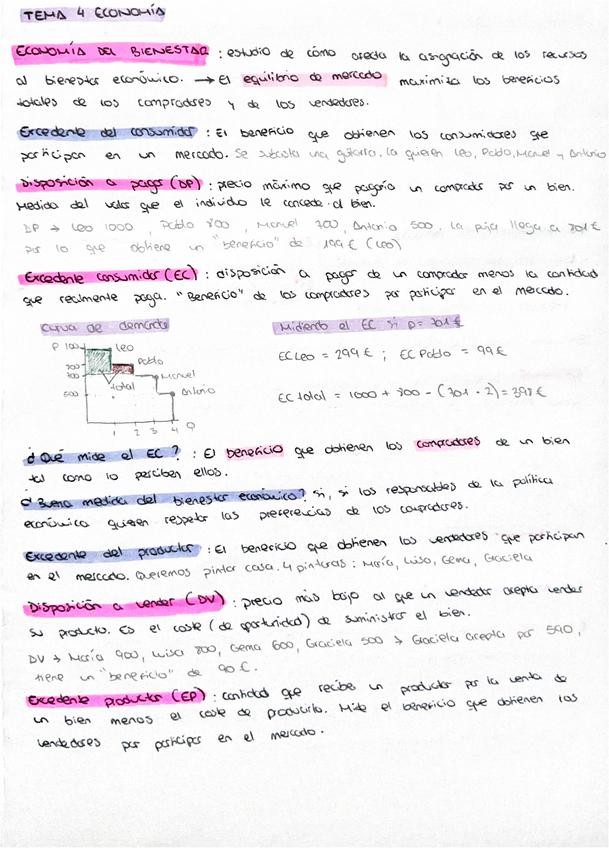 TEMA 4 ECONOMÍA
ECONOMÍA DEL BIENESTAR : estudio de cómo afecta la asignación de los recursos
al bienestar económico. → El equilibrio de mercado maximiza los beneficios
totales de los compradores y de los vendedores.
Excedente del consumidor : El beneficio que obtienen los consumidores que
participan en un mercado. Se subasta una guitarra, la quieren Leo, Pablo, Manuel y Antonio
Disposición a pagar (DP) : precio máximo que pagaría un comprador por un bien.
Medida del valor que el individuo le concede al bien.
DP → Leo 1000, Pablo 800, Manuel 700, Antonio 500. La puja llega a 701€
por lo que obtiene un "beneficio" de 199€ (Leo)
Excedente consumidor (EC) : disposición a pagar de un comprador menos la cantidad
que realmente paga. "Beneficio" de los compradores por participar en el mercado.
Curva de demanda
Midiendo el EC si p = 701€
P
Leo
Pablo
Manuel
Antonio
total
500
1 2 3 4 Q
EC Leo = 299€ ; EC Pablo = 99€
EC total = 1000 + 800 - (701 · 2) = 398€
¿Qué mide el EC? : El beneficio que obtienen los compradores de un bien
tal como lo perciben ellos.
¿Buena medida del bienestar económico? Si, si los responsables de la política
económica quieren respetar las preferencias de los compradores.
Excedente del productor : El beneficio que obtienen los vendedores que participan
en el mercado. Queremos pintar casa. 4 pintoras : María, Luisa, Gema, Graciela
Disposición a vender (DV) : precio más bajo al que un vendedor acepta vender
su producto. Es el coste (de oportunidad) de suministrar el bien.
DV → María 900, Luisa 800, Gema 600, Graciela 500 → Graciela acepta por 590,
tiene un "beneficio" de 90€.
Excedente productor (EP) : cantidad que recibe un productor por la venta de
un bien menos el coste de producirlo. Mide el beneficio que obtienen los
vendedores por participar en el mercado.